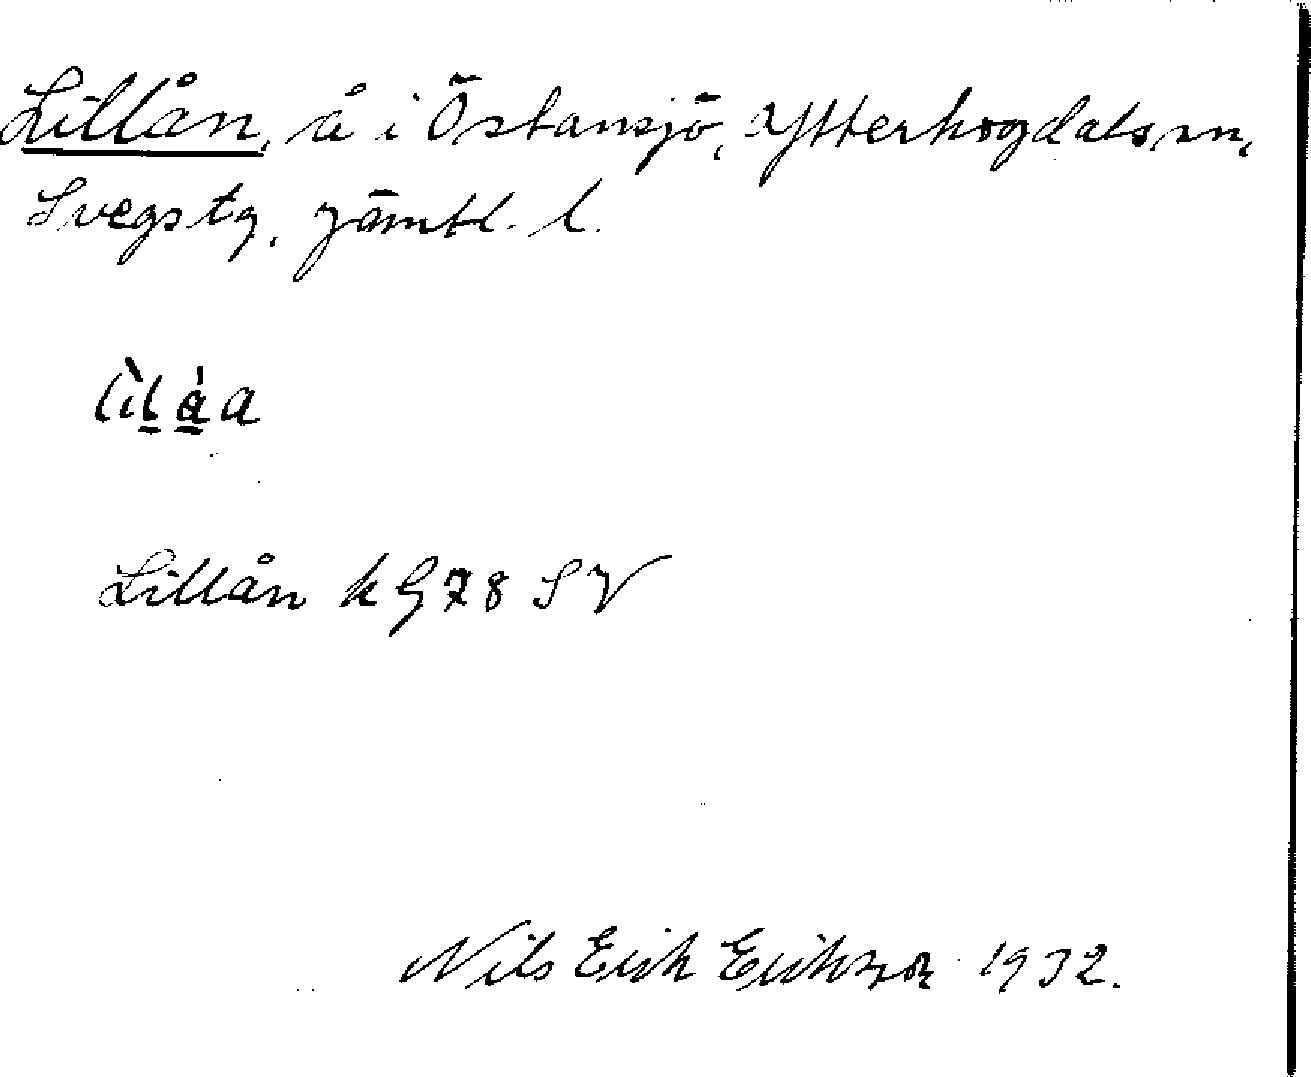 Lillån, å i Östansjö, Ytterhogdals sn,
Svegs tg, Jämtl. l.
Lillån k G 78 SV
Nils Erik Erikson 1932.